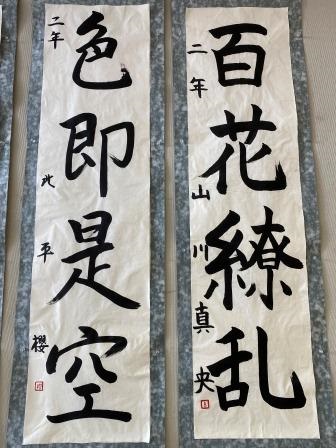 百花繚乱
二年 山川真央
色即是空
二年 北平櫻